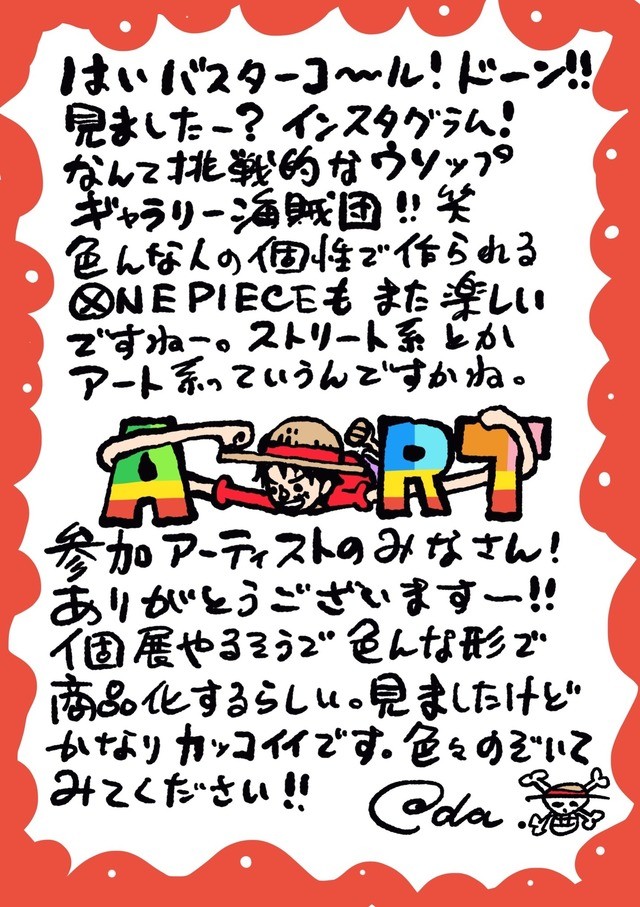 はい バスターコ〜ル! ドーン!!
見ましたー? インスタグラム!
なんて挑戦的なウソップ
ギャラリー海賊団!! 笑
色んな人の個性で作られる
ⓍNE PIECEも また楽しい
ですねー。ストリート系とか
アート系っていうんですかね。
ART
参加アーティストのみなさん!
ありがとうございますー!!
個展やるそうで 色んな形で
商品化するらしい。見ましたけど
かなり カッコイイです。色々のぞいて
みてください!!
@da.